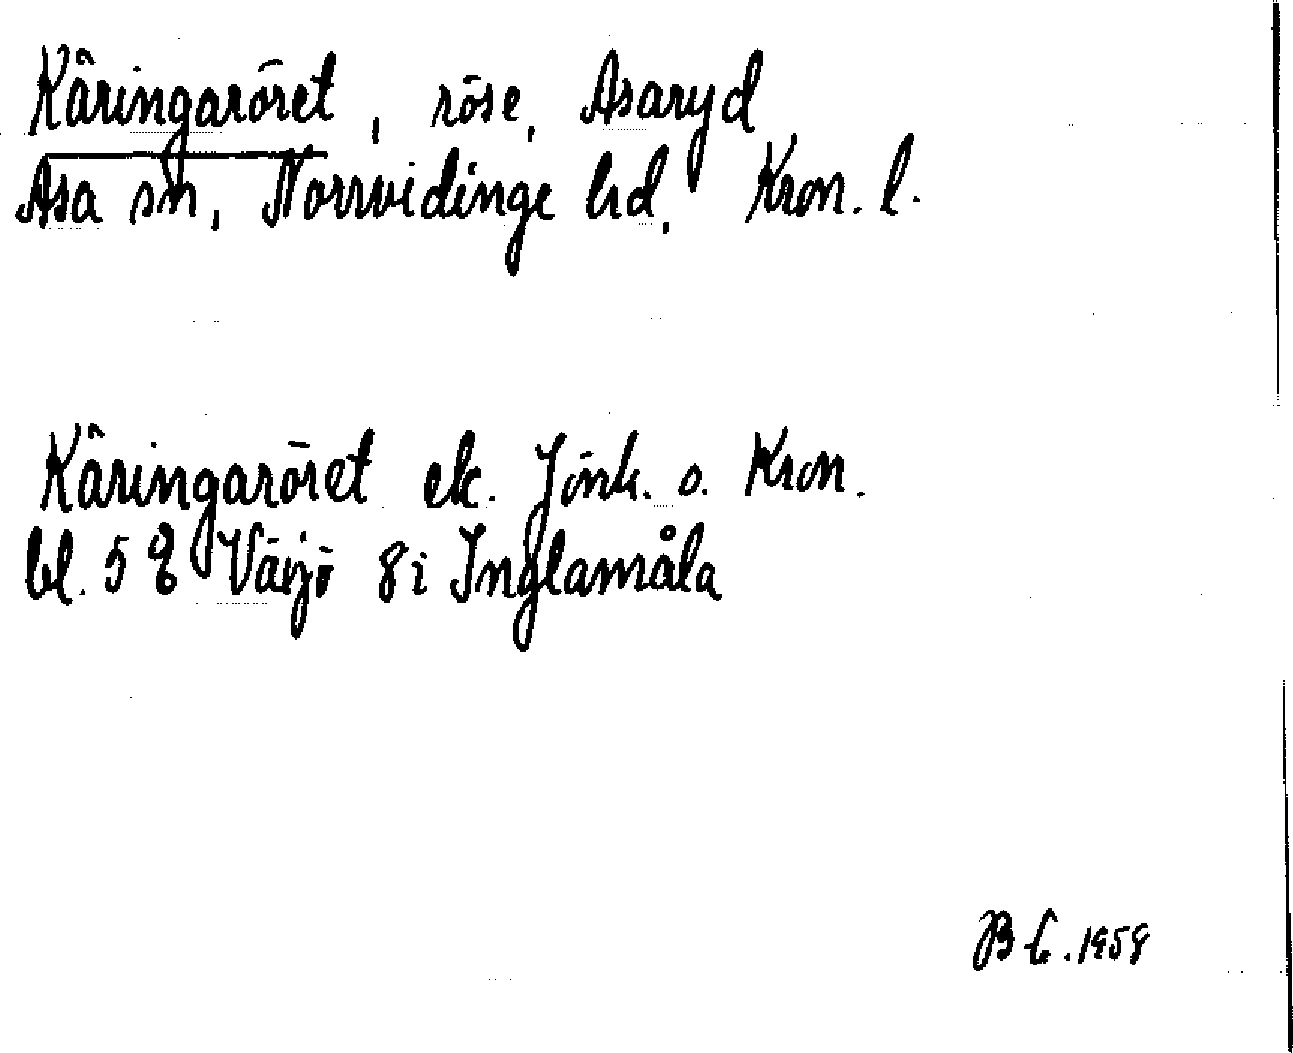 Käringaröret, röse, Asaryd
Asa sn, Norrvidinge hd, Kron. l.
Käringaröret ek. Jönk. o. Kron.
bl. 5 8 Växjö 8i Inglamåla
B C. 1958